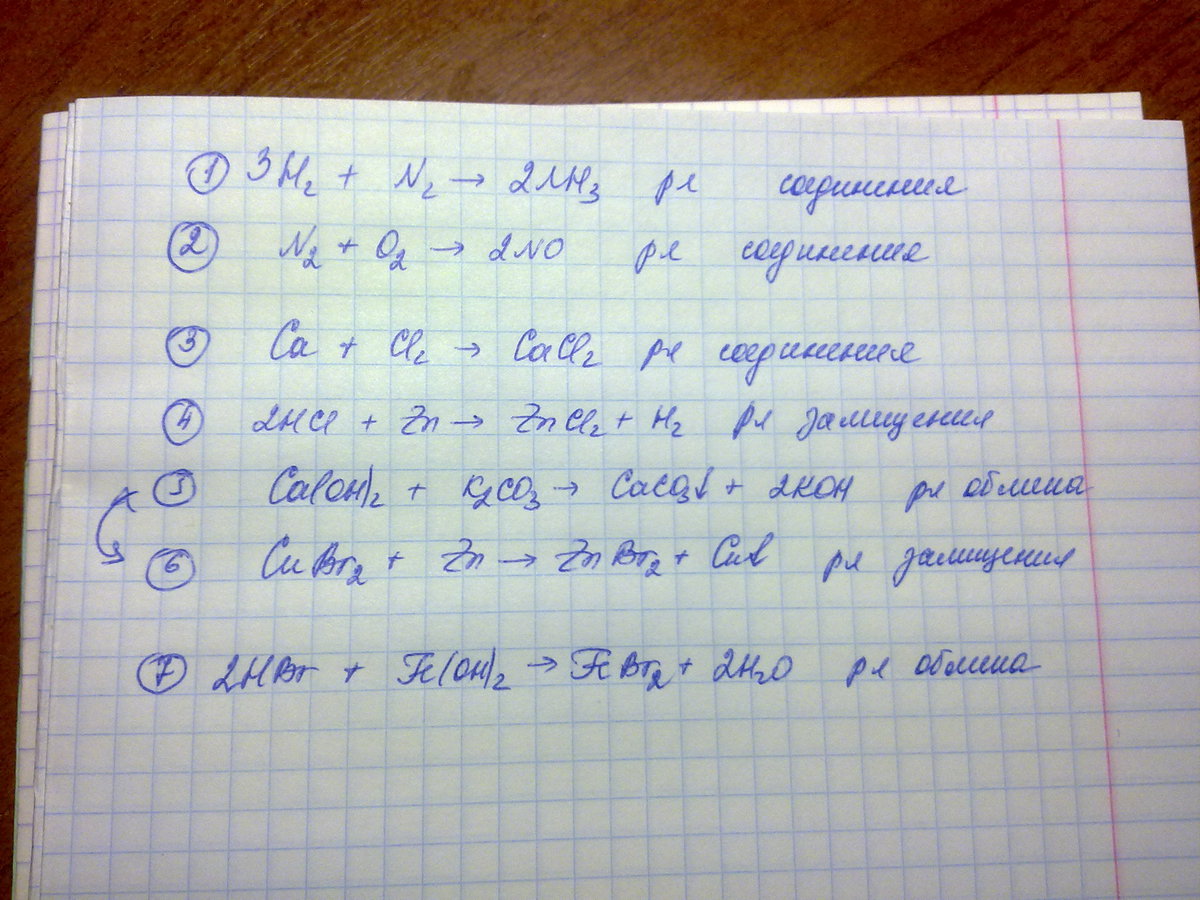 ① 3H₂ + N₂ → 2NH₃ ря соединения
② N₂ + O₂ → 2NO ря соединения
③ Ca + Cl₂ → CaCl₂ ря соединения
④ 2HCl + Zn → ZnCl₂ + H₂ ря замищения
⑤ Ca(OH)₂ + K₂CO₃ → CaCO₃↓ + 2KOH ря обмина
⑥ CuBr₂ + Zn → ZnBr₂ + Cu↓ ря замищения
⑦ 2HBr + Fe(OH)₂ → FeBr₂ + 2H₂O ря обмина